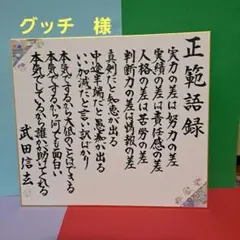 グッチ 様
正範語録
実力の差は努力の差
実績の差は責任感の差
人格の差は苦労の差
判断力の差は情報の差
真剣だと知恵が出る
中途半端だと愚痴が出る
いい加減だと言い訳ばかり
本気でするから大抵のことはできる
本気でするから何でも面白い
本気でしているから誰かが助けてくれる
武田信玄